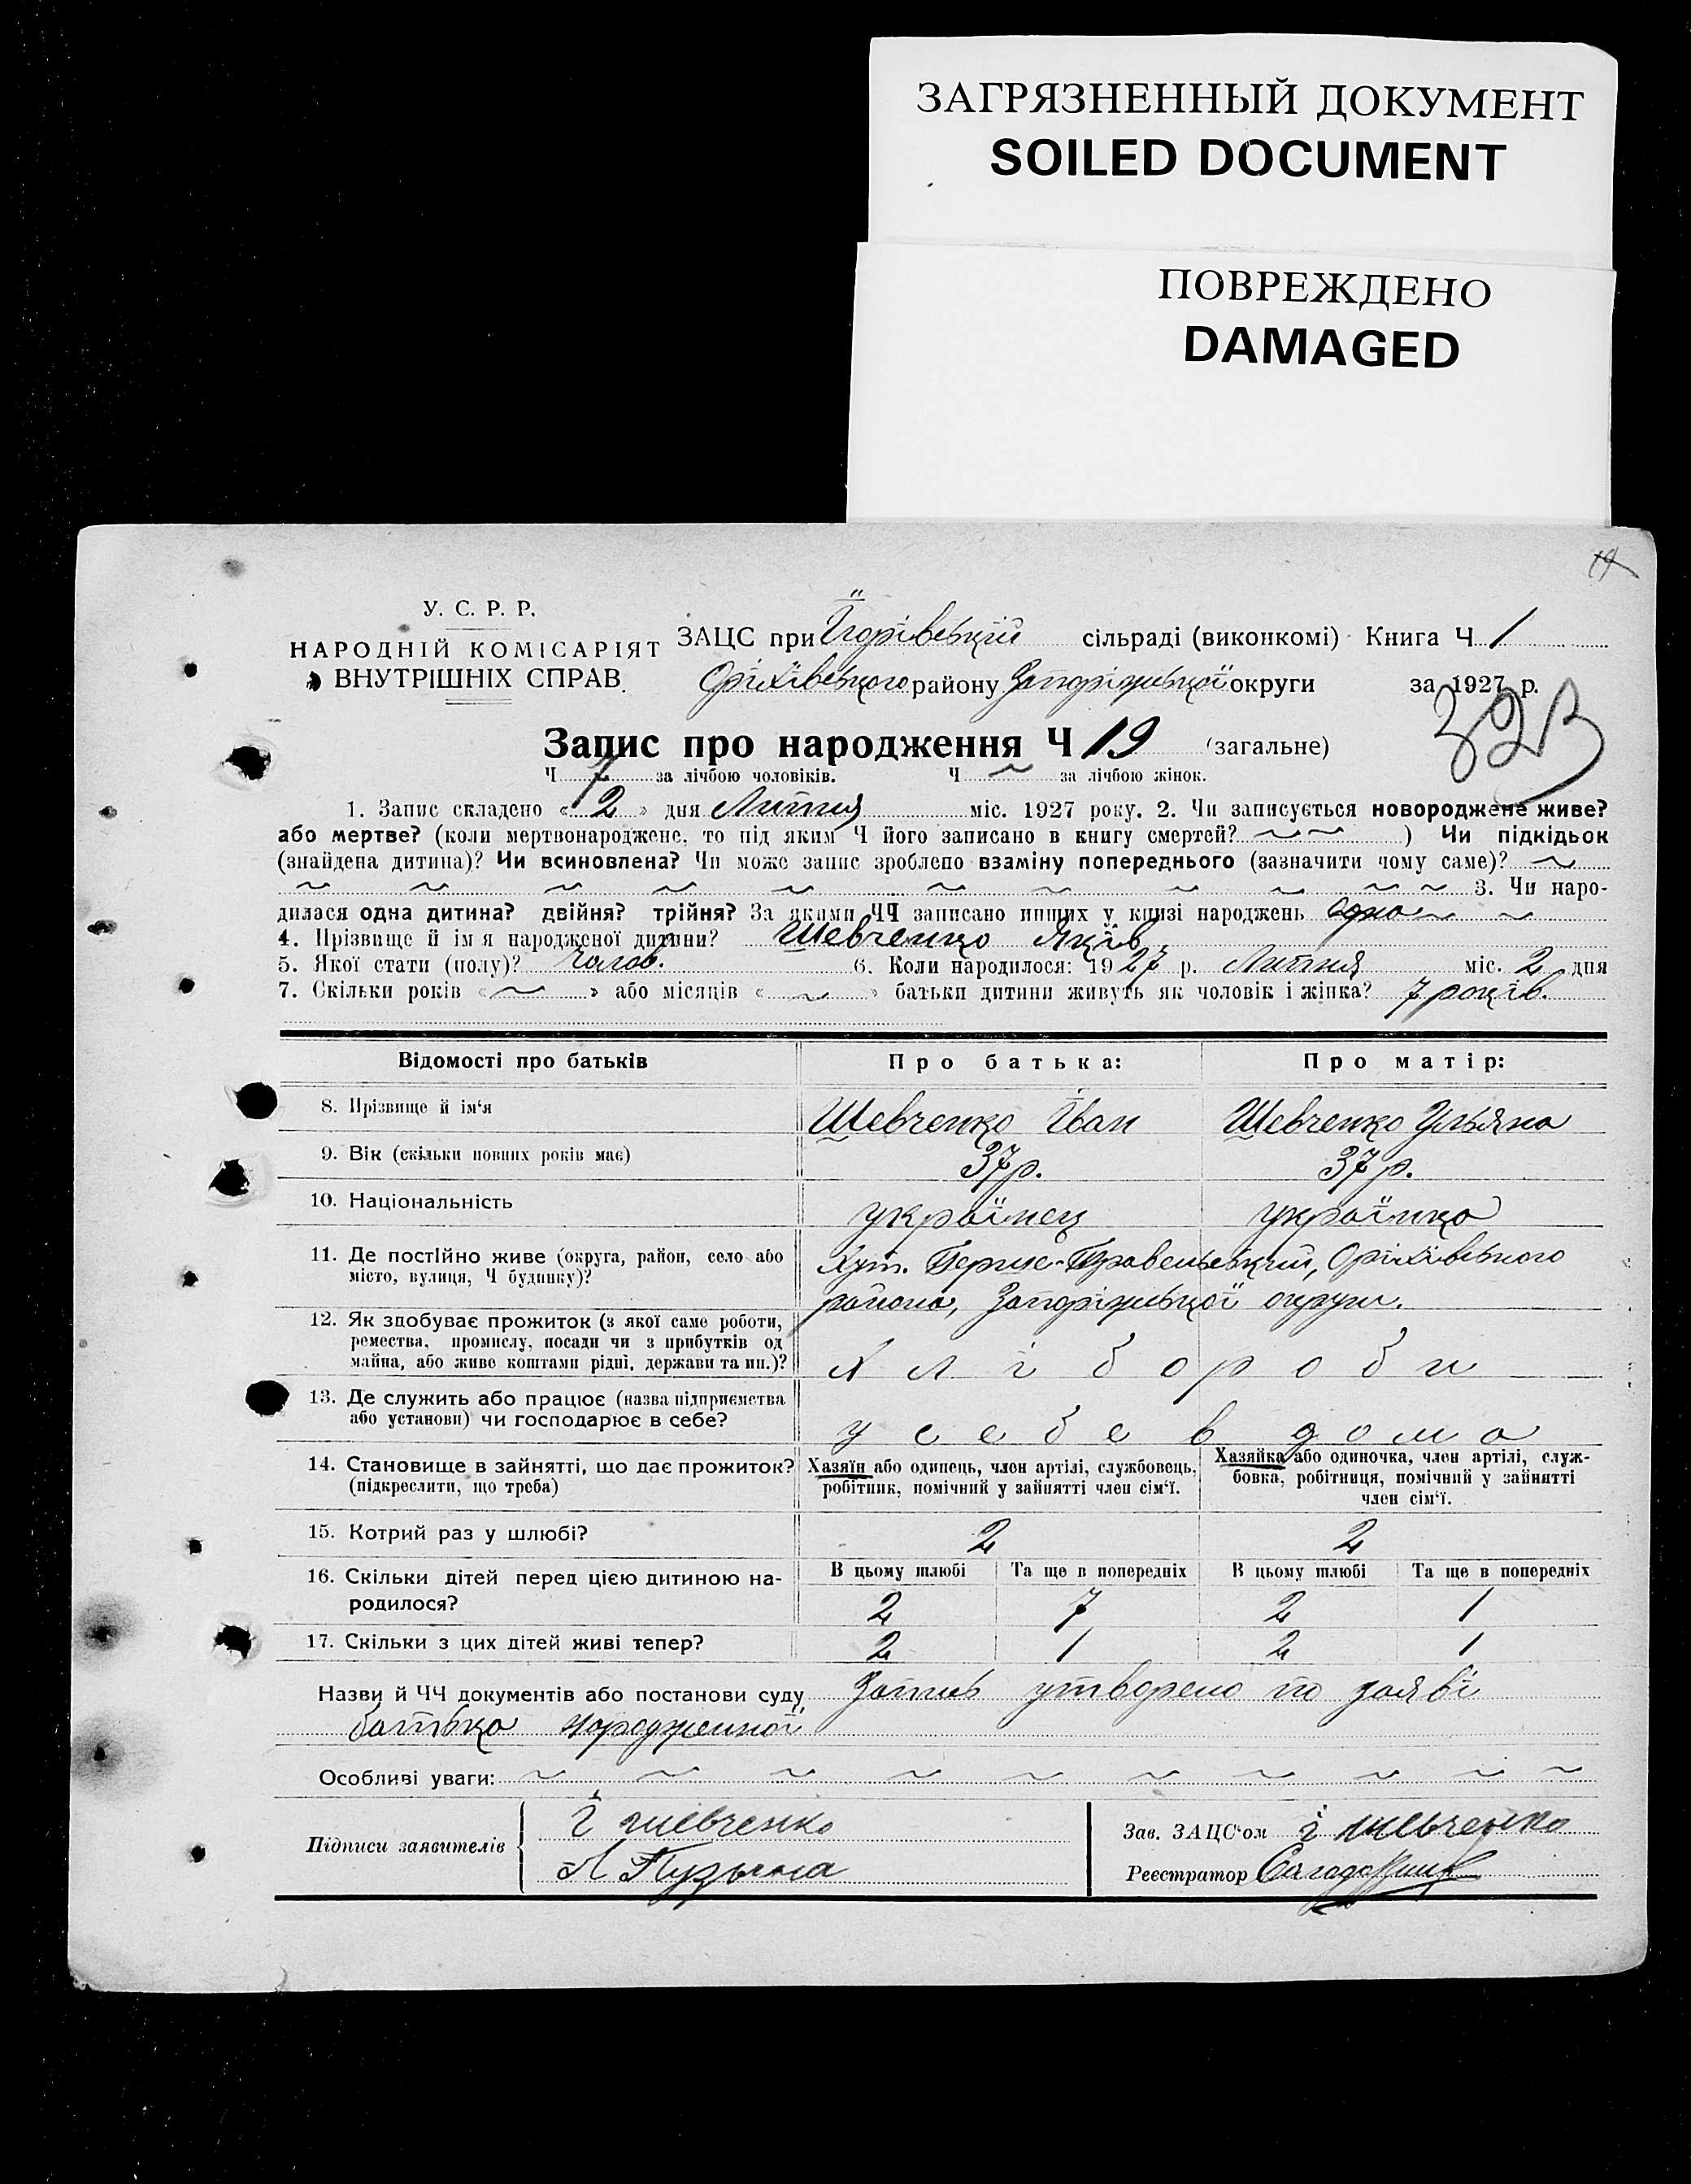 ЗАГРЯЗНЕННЫЙ ДОКУМЕНТ
SOILED DOCUMENT
ПОВРЕЖДЕНО
DAMAGED
19
У. С. Р. Р.
НАРОДНІЙ КОМІСАРІЯТ
ВНУТРІШНІХ СПРАВ.
ЗАЦС при сільраді (виконкомі) Книга Ч 1
Оріхівського району Запоріжської округи за 1927 р.
Запис про народження Ч 19 (загальне)
Ч 7 за лічбою чоловіків. Ч ~ за лічбою жінок.
1. Запис складено « 2 » дня Липня міс. 1927 року. 2. Чи записується новороджене живе?
або мертве? (коли мертвонароджене, то під яким Ч його записано в книгу смертей? ~ ~ ) Чи підкідьок
(знайдена дитина)? Чи всиновлена? Чи може запис зроблено взаміну попереднього (зазначити чому саме)? ~
~ ~ ~ ~ ~ ~ ~ ~ ~ ~ ~ 3. Чи наро-
дилася одна дитина? двійня? трійня? За якими ЧЧ записано инших у книзі народжень одно ~ ~
4. Прізвище й ім'я народженої дитини? Шевченко Яків.
5. Якої стати (полу)? чолов. 6. Коли народилося: 1927 р. Липня міс. 2 дня
7. Скільки років « ~ » або місяців « ~ » батьки дитини живуть як чоловік і жінка? 7 років.
Відомості про батьків Про батька: Про матір:
8. Прізвище й ім'я Шевченко Іван Шевченко Ульяна
9. Вік (скільки повних років має) 37 р. 37 р.
10. Національність українец українка
11. Де постійно живе (округа, район, село або Хут. Перше-Правенський, Оріхівського
місто, вулиця, Ч будинку)? района, Запоріжської округи.
12. Як здобуває прожиток (з якої саме роботи,
ремества, промислу, посади чи з прибутків од
майна, або живе коштами рідні, держави та ин.)? Хлібороби
13. Де служить або працює (назва підприємства
або установи) чи господарює в себе? у себе в дома
14. Становище в зайнятті, що дає прожиток? Хазяїн або одинець, член артілі, службовець, Хазяйка або одиночка, член артілі, служ-
(підкреслити, що треба) робітник, помічний у зайнятті член сім'ї. бовка, робітниця, помічний у зайнятті
член сім'ї.
15. Котрий раз у шлюбі? 2 2
16. Скільки дітей перед цією дитиною на- В цьому шлюбі Та ще в попередніх В цьому шлюбі Та ще в попередніх
родилося? 2 7 2 1
17. Скільки з цих дітей живі тепер? 2 1 2 1
Назви й ЧЧ документів або постанови суду Запись утворено по заяві
батька народженної
Особливі уваги: ~ ~ ~ ~ ~ ~ ~ ~ ~ ~
Підписи заявителів І шевченко Зав. ЗАЦС'ом і шевченко
Реєстратор